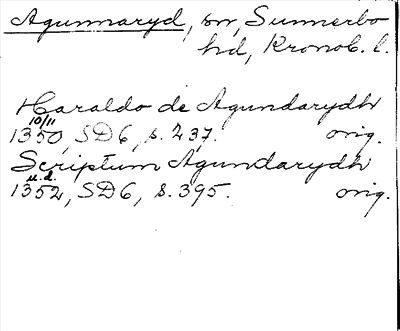 Agunnaryd, sn, Sunnerbo
hd, Kronob. l.
Haraldo de Agundarydh
10/11
1350, SD6, s. 237. orig.
Scriptum Agundarydh
u.d.
1352, SD6, s. 395. orig.